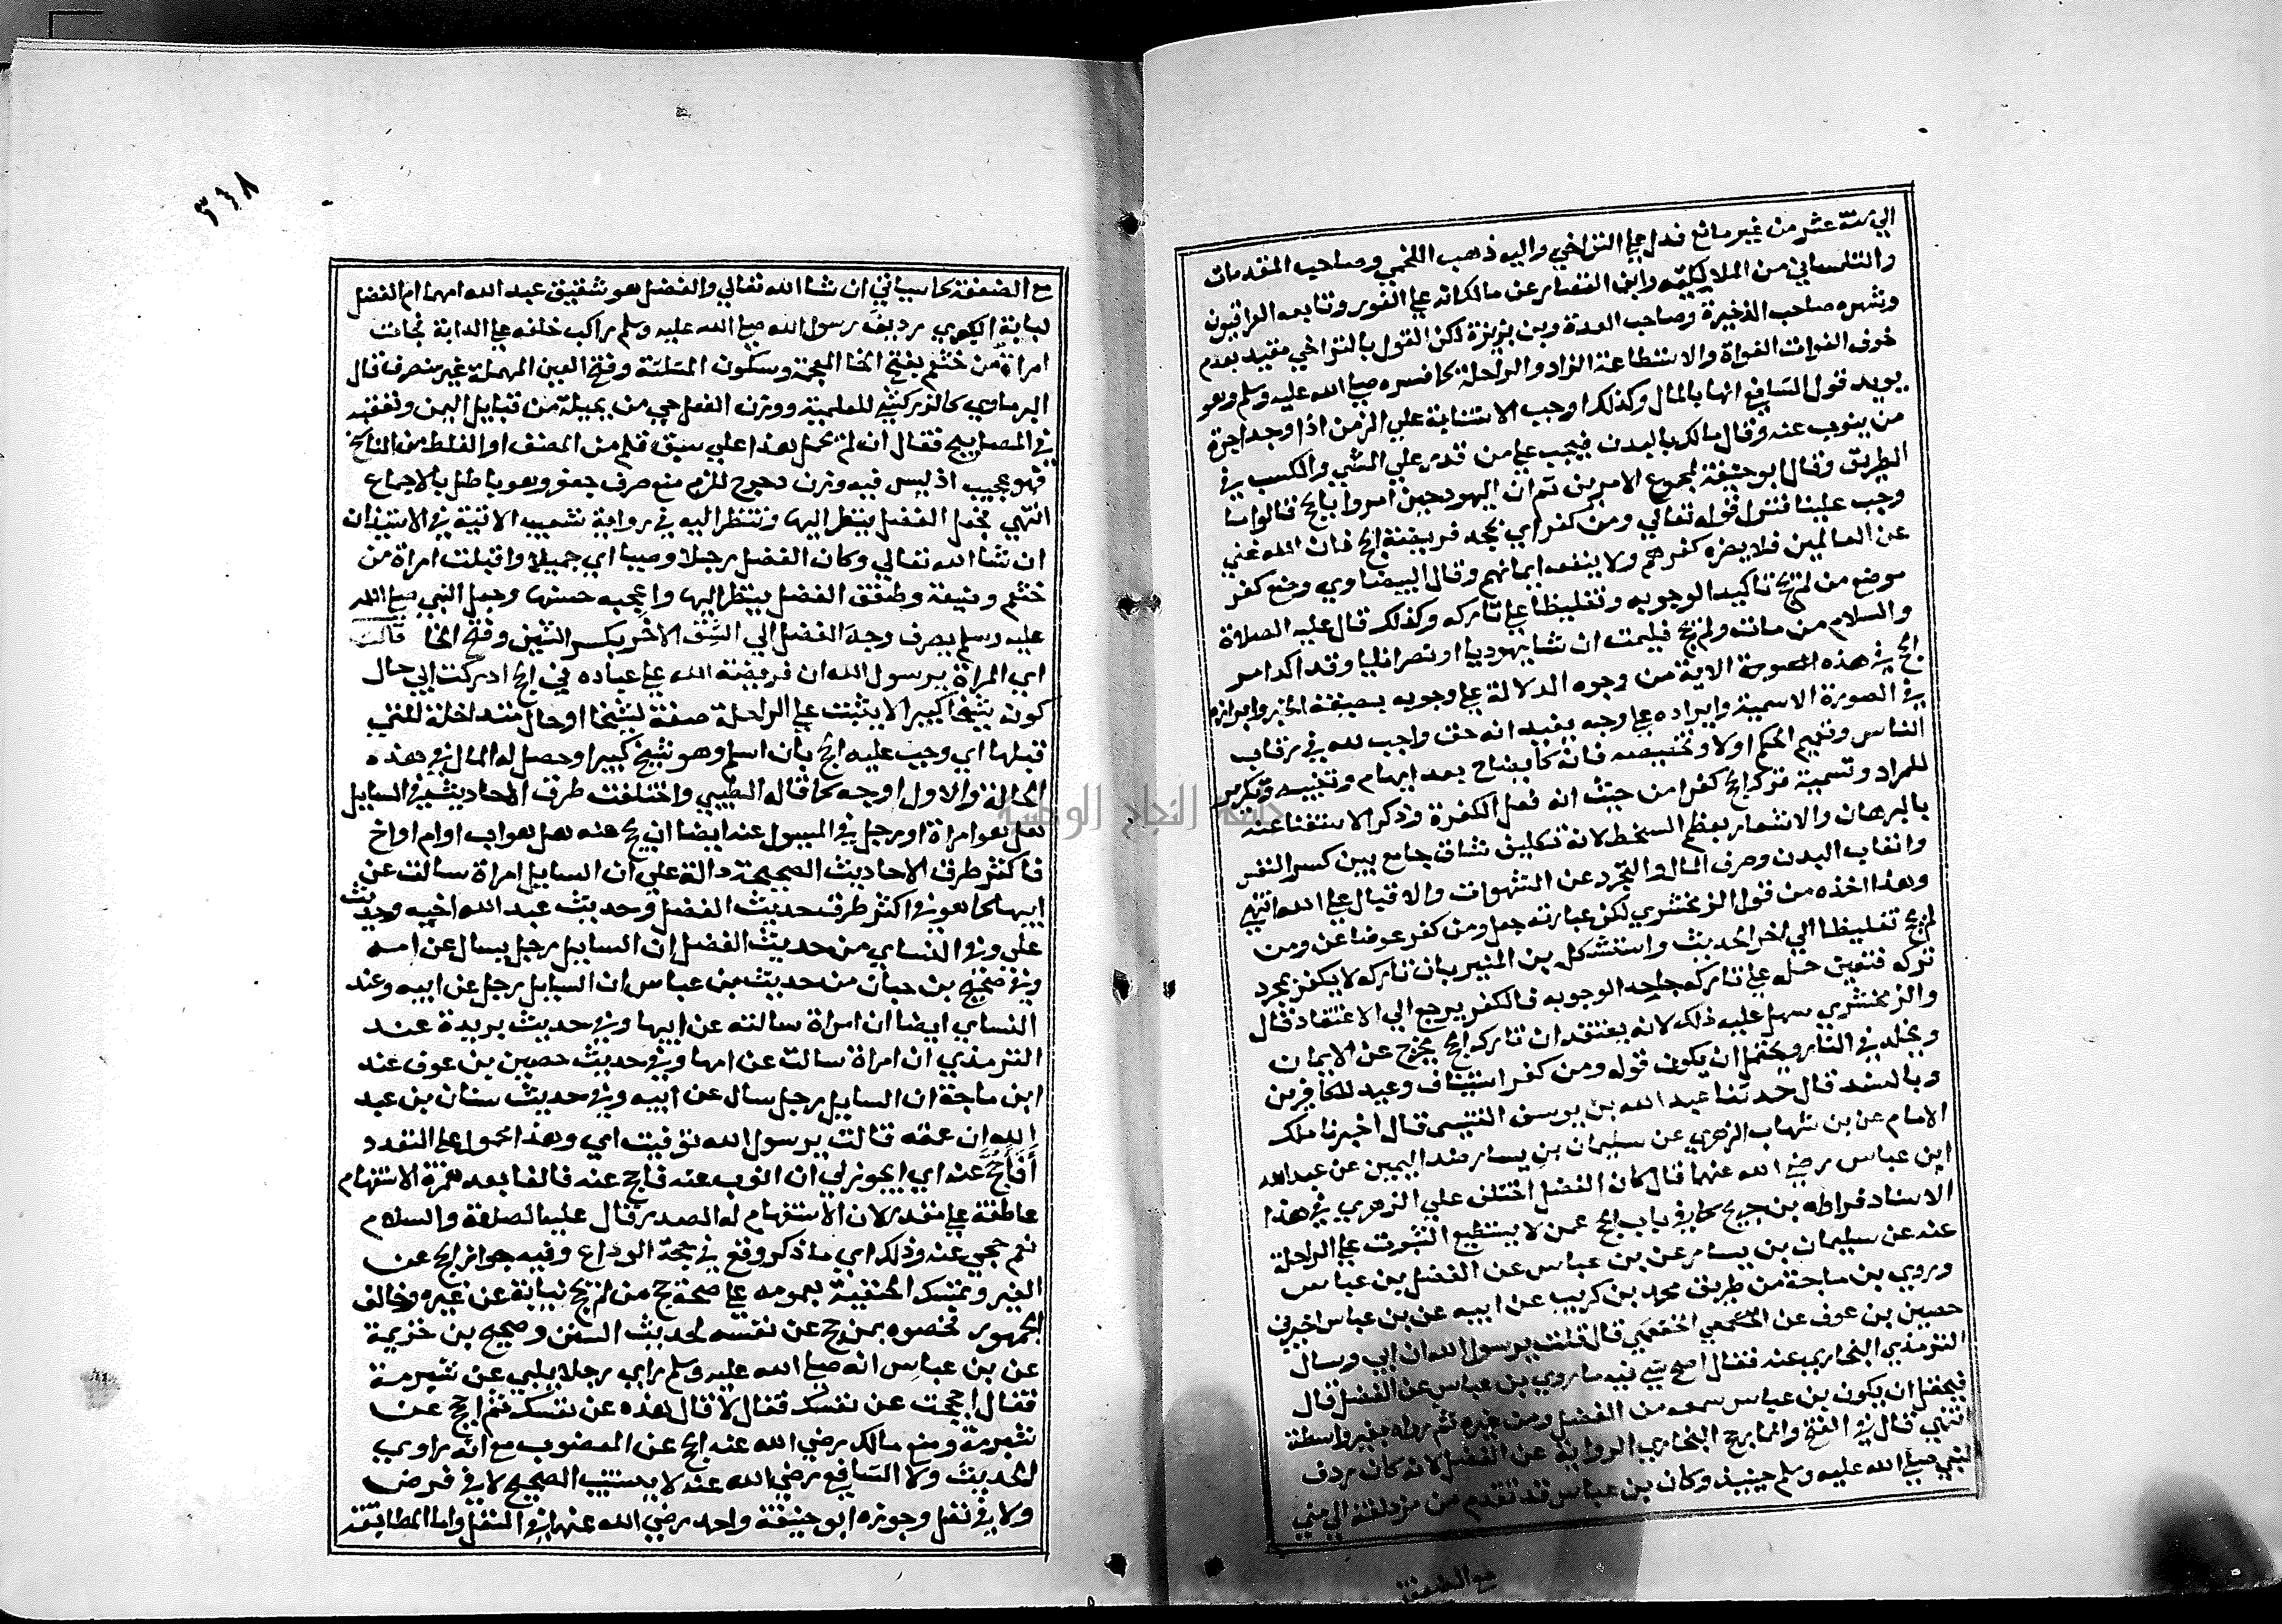 الي سنة عشر من غير مانع فدل علي التراخي واليه ذهب اللخمي وصاحب المقدمات
والتلمساني من المالكية وابن القصار عن مالك انه علي الفور وتابعه العراقيون
وشهره صاحب الذخيرة وصاحب العمدة وبن بزيزة لكن القول بالتراخي مقيد بعدم
خوف الفوات الفواة والاستطاعة الزاد والراحلة كما فسره صلي الله عليه وسلم وهو
يويد قول الشافعي انها بالمال وكذلك اوجب الاستنابة علي الزمن اذا وجد اجرة
من ينوب عنه وقال مالك بالبدن فيجب علي من قدر علي المشي والكسب في
الطريق وقال ابو حنيفة لمجموع الامرين ثم ان اليهود حين امروا بالحج قالوا ما
وجب علينا فنزل قوله تعالي ومن كفر اي بجحد فريضة الحج فان الله غني
عن العالمين فلا يضره كفرهم ولا ينفعه ايمانهم وقال البيضاوي وضع كفر
موضع من لم يحج تاكيد الوجوبه وتغليظا علي تاركه وكذلك قال عليه الصلاة
والسلام من مات ولم يحج فليمت ان شا يهوديا او نصرانيا وقد اكد امر
الحج في هذه الاية من وجوه الدلالة علي وجوبه بصيغة الخبر وابرازه
في الصورة الاسمية وايراده علي وجه يفيد انه حق واجب لله في رقاب
الناس وتعميم الحكم اولا وتخصيصه فانه كايضاح بعد ابهام وتثنية وتكرير
للمراد وتسمية ترك الحج كفرا من حيث انه فعل الكفرة وذكر الاستغنا عنه
بالبرهان والاشعار بعظم السخط لانه تكليف شاق جامع بين كسر النفس
واتعاب البدن وصرف المال والتجرد عن الشهوات والاقبال علي الله انتهي
وهذا اخذه من قول الزمخشري لكن عبارته جعل ومن كفر عوضا عن ومن
لم يحج تغليظا الي اخر الحديث واستشكل بن المنير بان تاركه لا يكفر بمجرد
تركه فتعين حمله علي تاركه جاحد الوجوبه فالكفر يرجع الي الاعتقاد قال
والزمخشري سهل عليه ذلك لانه يعتقد ان تارك الحج يخرج عن الايمان
ويخلد في النار ويحتمل ان يكون قوله ومن كفر استيناف وعيد للكافرين
وبالسند قال حدثنا عبد الله بن يوسف التنيسي قال اخبرنا ملك
الامام عن بن شهاب الزهري عن سليمان بن يسار ضد اليمين عن عبد الله
ابن عباس رضي الله عنهما قال كان الفضل اختلف علي الزهري في هذا
الاسناد فرواه بن جريج كما في باب الحج عمن لا يستطيع الثبوت علي الراحلة
عنه عن سليمان بن يسار عن بن عباس عن الفضل بن عباس
وروي بن ماجة من طريق محمد بن كريب عن ابيه عن بن عباس اخبرني
حصين بن عوف الخثعمي قال قلت يرسول الله ان ابي وسال
الترمذي البخاري عنه فقال اصح شي فيه ما روي بن عباس عن الفضل قال
فيحتمل ان يكون بن عباس سمعه من الفضل ومن غيره ثم رواه بغير واسطة
انتهي قال في الفتح وانما رجح البخاري الرواية عن الفضل لانه كان ردف
النبي صلي الله عليه وسلم حينيذ وكان بن عباس قد تقدم من مزدلفة الي مني
مع الضعفة
٣٦٨
مع الضعفة كما سياتي ان شا الله تعالي والفضل هو شقيق عبد الله امهما ام الفضل
لبابة الكبري رديف رسول الله صلي الله عليه وسلم راكب خلفه علي الدابة فجات
امراة من خثعم بفتح الخا المعجمة وسكون المثلثة وفتح العين المهملة غير منصرف قال
البرماوي كالزركشي للعلمية ووزن الفعل حي من بجيلة من قبايل اليمن وتعقبه
في المصابيح فقال ان لم يحمل هذا علي سبق قلم من المصنف او الغلط من الناسخ
فهو عجيب اذ ليس فيه وزن دحرج للزم منع صرف جعفر وهو باطل بالاجماع
انتهي فجعل الفضل ينظر اليها وتنظر اليه في رواية شعيب الاتية في الاستيذان
ان شا الله تعالي وكان الفضل رجلا وضيا اي جميلا واقبلت امراة من
خثعم وضيئة وطفق الفضل ينظر اليها واعجبه حسنها وجعل النبي صلي الله
عليه وسلم يصرف وجه الفضل الي الشق الاخر بكسر الشين وفتح الخا فقالت
اي المراة يرسول الله ان فريضة الله علي عباده في الحج ادركت ابي حال
كونه شيخا كبيرا لا يثبت علي الراحلة صفة لشيخا او حال متداخلة للتي
قبلها اي وجب عليه الحج بان اسلم وهو شيخ كبير او حصل له المال في هذه
الحالة والاول اوجه كما قاله الطيبي واختلفت طرق الاحاديث في السايل
هل هو امراة او رجل في المسيول عنه ايضا ان يحج عنه هل هو اب او ام او اخ
فاكثر طرق الاحاديث الصحيحة دالة علي ان السايل امراة سالت عن
ابيها كما هو في اكثر طرق حديث الفضل وحديث عبد الله اخيه وحديث
علي وفي النساي من حديث الفضل ان السايل رجل يسال عن امه
وفي صحيح بن حبان من حديث بن عباس ان السايل رجل عن ابيه وعند
النساي ايضا ان امراة سالته عن ابيها وفي حديث بريدة عند
الترمذي ان امراة سالت عن امها وفي حديث حصين بن عوف عند
ابن ماجة ان السايل رجل سال عن ابيه وفي حديث سنان بن عبد
الله ان عمته قالت يرسول الله توفيت امي وهذا محمول علي التعدد
أفأحج عنه اي ايجوز لي ان انوب عنه فاحج عنه فالفا بعد همزة الاستفهام
عاطفة علي مقدر لان الاستفهام له الصدر قال عليه الصلاة والسلام
نعم حجي عنه وذلك اي ما ذكر وقع في حجة الوداع وفيه جواز الحج عن
الغير وتمسك الحنفية بعمومه علي صحة حج من لم يحج نيابة عن غيره وخالف
الجمهور فخصوه بمن حج عن نفسه لحديث السنن وصحيح بن خزيمة
عن بن عباس انه صلي الله عليه وسلم راي رجلا يلبي عن شبرمة
فقال احججت عن نفسك فقال لا قال هذه عن نفسك ثم احجج عن
شبرمة ومنع مالك رضي الله عنه الحج عن المعضوب مع انه راوي
الحديث ولا الشافعي رضي الله عنه لا يستنيب الصحيح لا في فرض
ولا في نفل وجوزه ابو حنيفة واحمد رضي الله عنهما في النفل واما المطابقة